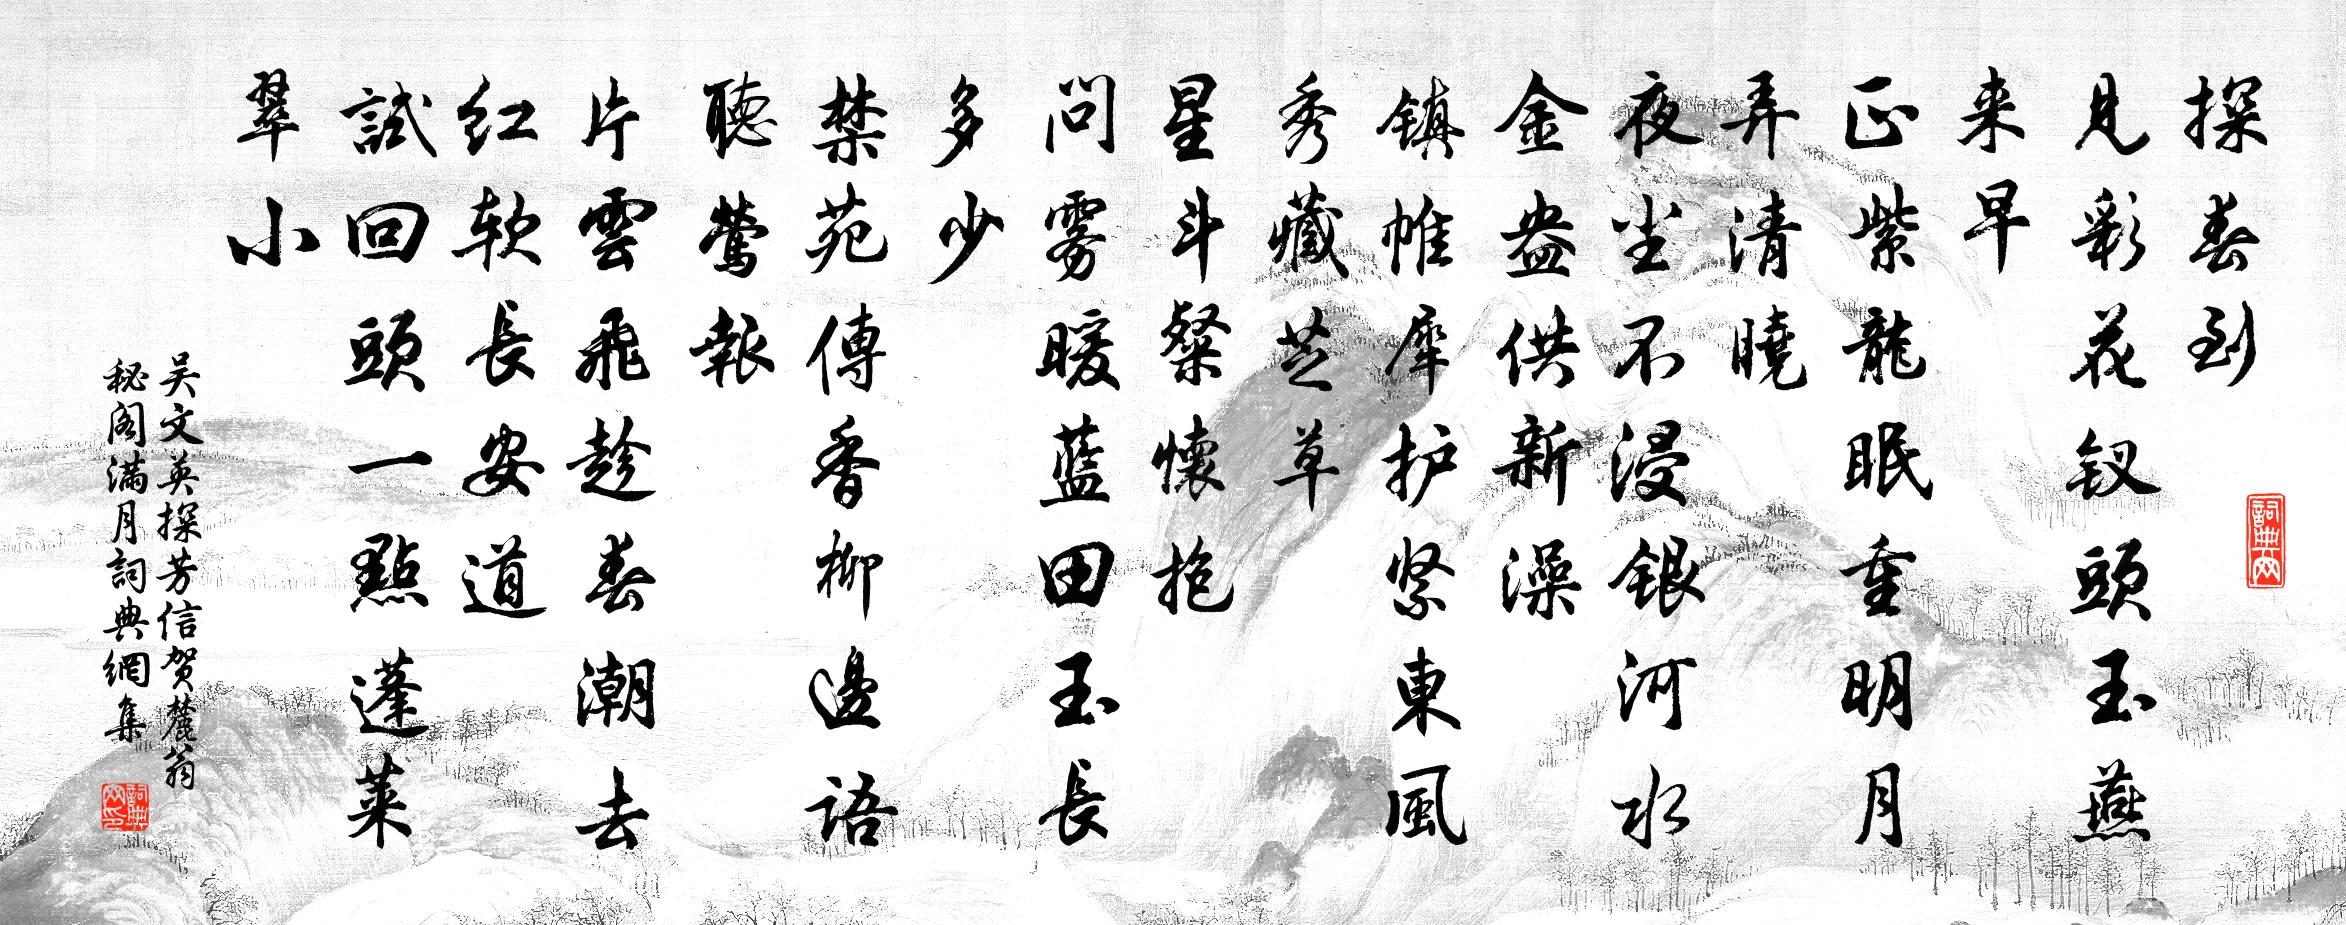 探春到
見彩花钗頭玉燕
来早
正紫龍眠重明月
弄清曉
夜尘不浸銀河水
金盎供新澡
镇帷犀护紧東風
秀藏芝草
星斗粲懷抱
問雾暖藍田玉長
多少
禁苑傳香柳邊語
聽莺報
片雲飛趁春潮去
红软長安道
試回頭一點蓬莱
翠小
吴文英探芳信贺麓翁
秘阁满月詞典網集
詞典网
詞典网印